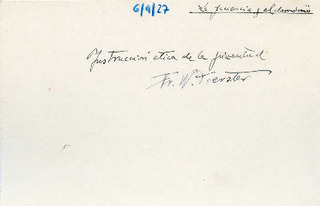 6/9/27
La y el dominio
Instrucción ética de la juventud
Fr. W. Foerster